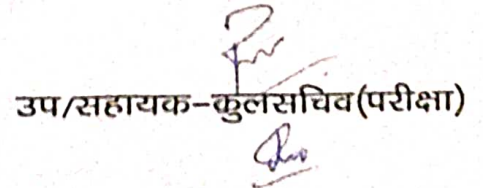 उप/सहायक-कुलसचिव(परीक्षा)